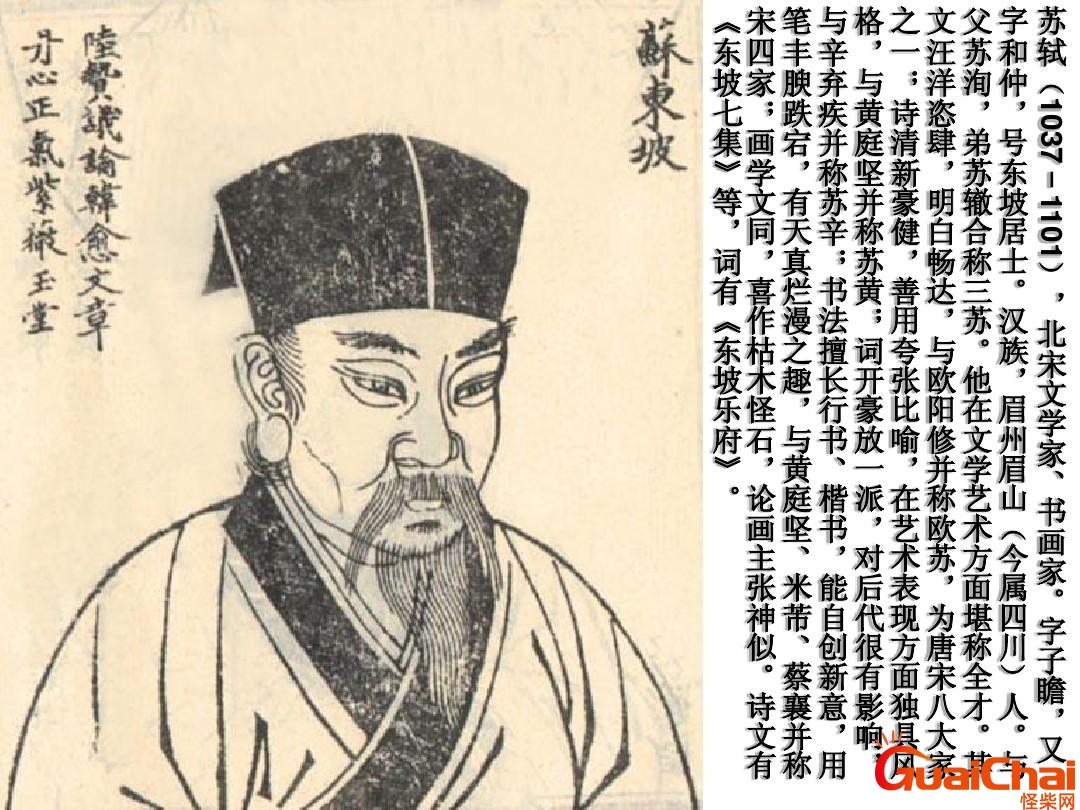 苏轼（1037－1101），北宋文学家、书画家。字子瞻，又
字和仲，号东坡居士。汉族，眉州眉山（今属四川）人。与
父苏洵，弟苏辙合称三苏。他在文学艺术方面堪称全才。其
文汪洋恣肆，明白畅达，与欧阳修并称欧苏，为唐宋八大家
之一；诗清新豪健，善用夸张比喻，在艺术表现方面独具风
格，与黄庭坚并称苏黄；词开豪放一派，对后代很有影响，
与辛弃疾并称苏辛；书法擅长行书、楷书，能自创新意，用
笔丰腴跌宕，有天真烂漫之趣，与黄庭坚、米芾、蔡襄并称
宋四家；画学文同，喜作枯木怪石，论画主张神似。诗文有
《东坡七集》等，词有《东坡乐府》。
蘇東坡
陸贄議論韓愈文章
丹心正氣紫薇玉堂
GuaiChai
怪柴网